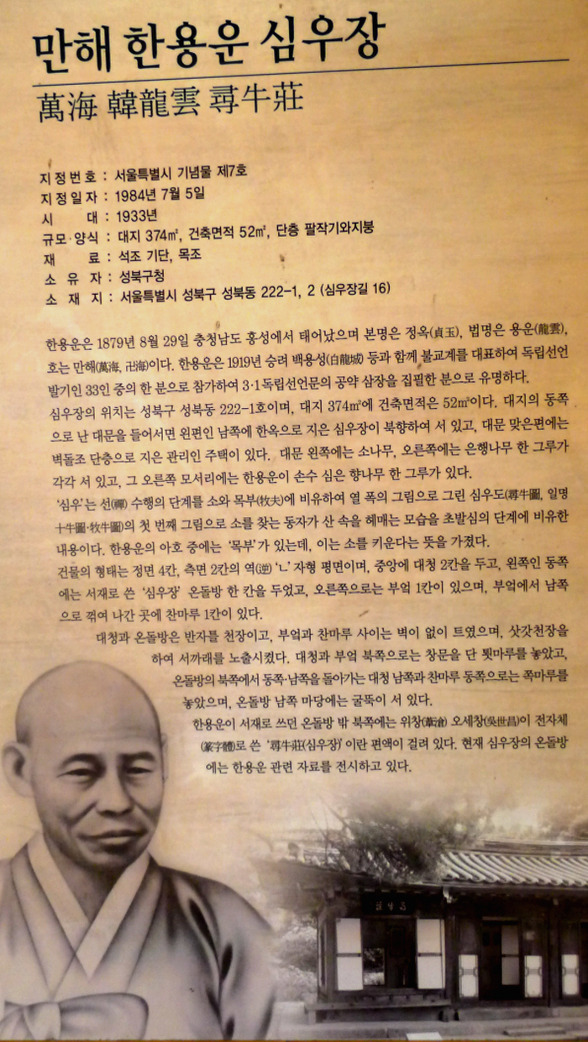 만해 한용운 심우장
萬海 韓龍雲 尋牛莊
지정번호 : 서울특별시 기념물 제7호
지정일자 : 1984년 7월 5일
시 대 : 1933년
규모·양식 : 대지 374㎡, 건축면적 52㎡, 단층 팔작기와지붕
재 료 : 석조 기단, 목조
소 유 자 : 성북구청
소 재 지 : 서울특별시 성북구 성북동 222-1, 2 (심우장길 16)
한용운은 1879년 8월 29일 충청남도 홍성에서 태어났으며 본명은 정옥(貞玉), 법명은 용운(龍雲),
호는 만해(萬海, 卍海)이다. 한용운은 1919년 승려 백용성(白龍城) 등과 함께 불교계를 대표하여 독립선언
발기인 33인 중의 한 분으로 참가하여 3·1독립선언문의 공약 삼장을 집필한 분으로 유명하다.
심우장의 위치는 성북구 성북동 222-1호이며, 대지 374㎡에 건축면적은 52㎡이다. 대지의 동쪽
으로 난 대문을 들어서면 왼편인 남쪽에 한옥으로 지은 심우장이 북향하여 서 있고, 대문 맞은편에는
벽돌조 단층으로 지은 관리인 주택이 있다. 대문 왼쪽에는 소나무, 오른쪽에는 은행나무 한 그루가
각각 서 있고, 그 오른쪽 모서리에는 한용운이 손수 심은 향나무 한 그루가 있다.
‘심우’는 선(禪) 수행의 단계를 소와 목부(牧夫)에 비유하여 열 폭의 그림으로 그린 심우도(尋牛圖, 일명
十牛圖·牧牛圖)의 첫 번째 그림으로 소를 찾는 동자가 산 속을 헤매는 모습을 초발심의 단계에 비유한
내용이다. 한용운의 아호 중에는 ‘목부’가 있는데, 이는 소를 키운다는 뜻을 가졌다.
건물의 형태는 정면 4칸, 측면 2칸의 역(逆) ‘ㄴ’ 자형 평면이며, 중앙에 대청 2칸을 두고, 왼쪽인 동쪽
에는 서재로 쓴 ‘심우장’ 온돌방 한 칸을 두었고, 오른쪽으로는 부엌 1칸이 있으며, 부엌에서 남쪽
으로 꺾여 나간 곳에 찬마루 1칸이 있다.
대청과 온돌방은 반자를 천장이고, 부엌과 찬마루 사이는 벽이 없이 트였으며, 삿갓천장을
하여 서까래를 노출시켰다. 대청과 부엌 북쪽으로는 창문을 단 툇마루를 놓았고,
온돌방의 북쪽에서 동쪽·남쪽을 돌아가는 대청 남쪽과 찬마루 동쪽으로는 쪽마루를
놓았으며, 온돌방 남쪽 마당에는 굴뚝이 서 있다.
한용운이 서재로 쓰던 온돌방 밖 북쪽에는 위창(葦倉) 오세창(吳世昌)이 전자체
(篆字體)로 쓴 ‘尋牛莊(심우장)’이란 편액이 걸려 있다. 현재 심우장의 온돌방
에는 한용운 관련 자료를 전시하고 있다.